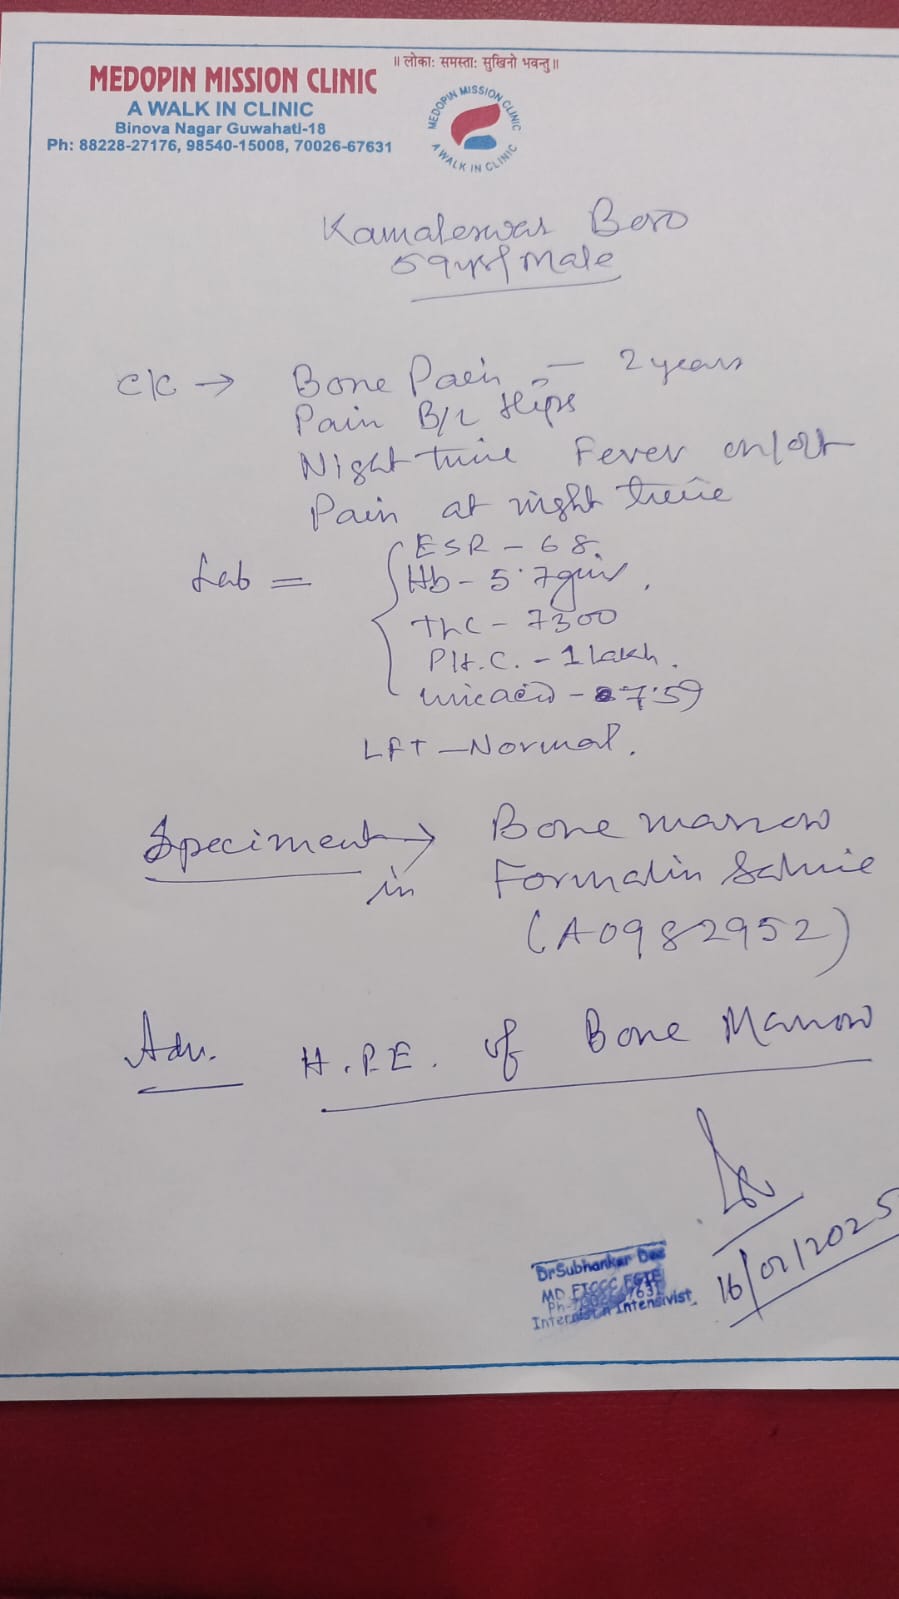 ॥ लोका: समस्ता: सुखिनो भवन्तु॥
MEDOPIN MISSION CLINIC
A WALK IN CLINIC
Binova Nagar Guwahati-18
Ph: 88228-27176, 98540-15008, 70026-67631
MEDOPIN MISSION CLINIC
A WALK IN CLINIC
Kamaleswar Boro
59yrs/Male
C/C → Bone Pain – 2 years
Pain B/L Hips
Night time Fever on/off
Pain at night time
Lab = ESR – 68.
Hb – 5.7gm.
TLC – 7300
Plt.C. – 1 lakh.
uric acid – 7.59
LFT – Normal.
Speciment → Bone marrow
in Formalin Saline
(A0982952)
Adv. H.P.E. of Bone Marrow
16/02/2025
Dr Subhankar
MD FICCC
Ph-
Intensivist